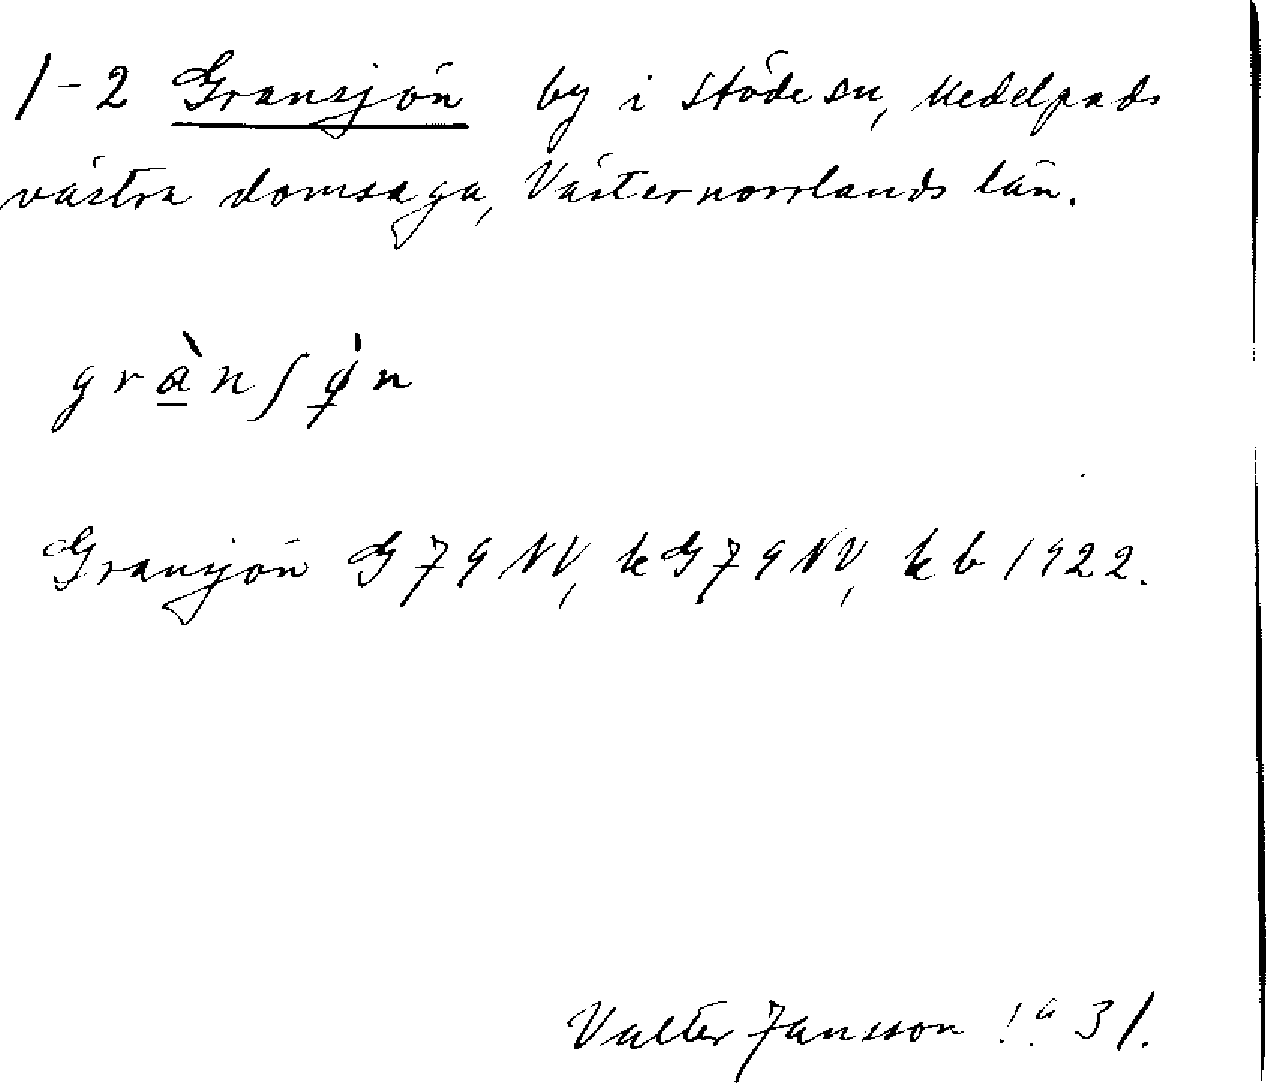 1-2 Gransjön by i Stöde sn, Medelpads
västra domsaga, Västernorrlands län.
grànʃø̀n
Gransjön G 79 NV, kG 79 NV, kb 1922.
Valter Jansson 31.